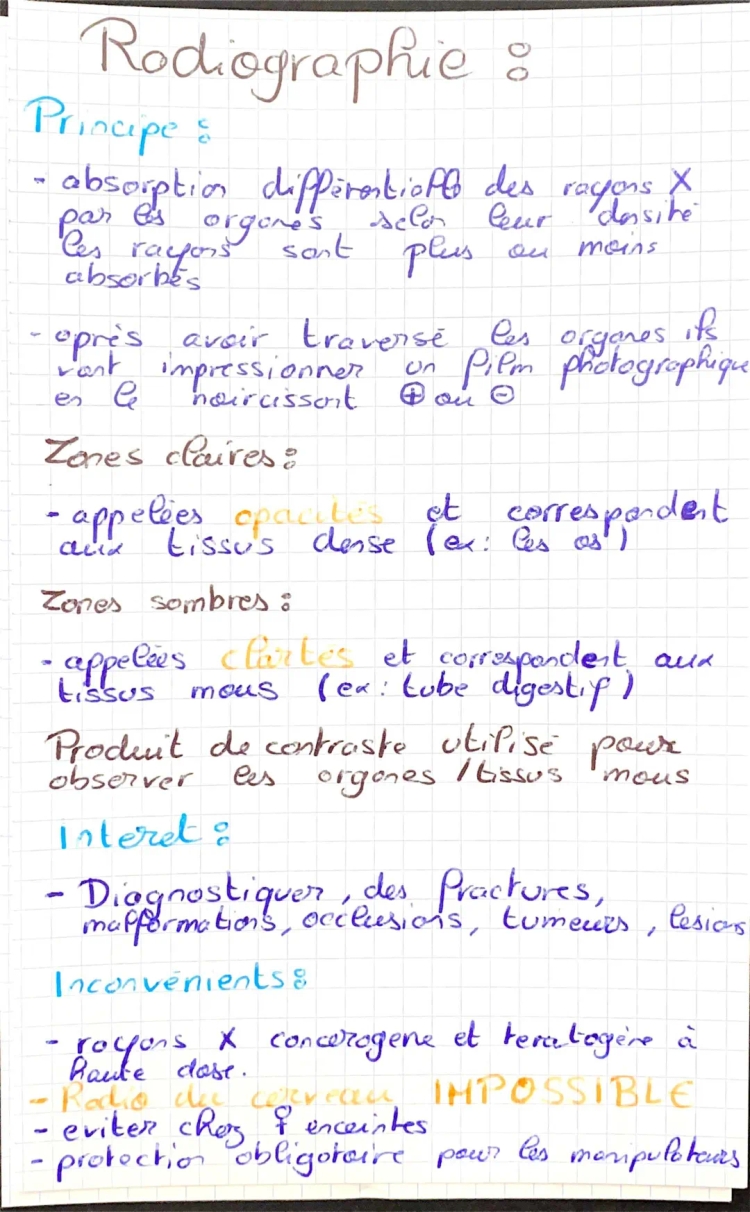 Radiographie :
Principe :
- absorption différentielle des rayons X
par les organes selon leur densité
les rayons sont plus ou moins
absorbés
- après avoir traversé les organes ils
vont impressionner un film photographique
en le noircissant ⊕ ou ⊖
Zones claires :
- appelées opacités et correspondent
aux tissus dense (ex : les os)
Zones sombres :
- appelées clartés et correspondent aux
tissus mous (ex : tube digestif)
Produit de contraste utilisé pour
observer les organes / tissus mous
Interet :
- Diagnostiquer, des fractures,
malfformations, occlusions, tumeurs, lesions
Inconvénients :
- rayons X cancerogene et teratogène à
haute dose.
- Radio du cerveau IMPOSSIBLE
- eviter chez ♀ enceintes
- protection obligatoire pour les manipulateurs